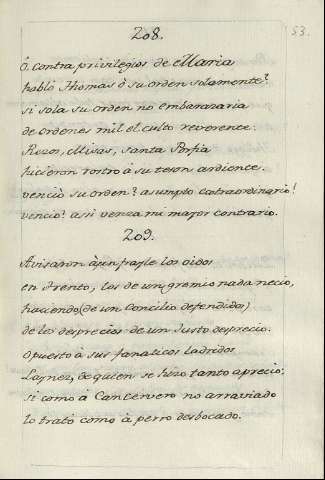 208.
53.
Ó contra privilegios de Maria
habló Thomas ò su orden solamente?
si sola su orden no embarazaria
de ordenes mil el culto reverente:
Rezos, Misas, santa Porfia
hicieron rostro à su teson ardiente.
venciò su orden? asumpto extraordinario!
venciò? asi venza mi mayor contrario.
209.
Avisaron à un frayle los oidos
en Trento, los de un gremio nada necio,
haciendo (de un Concilio defendidos)
de los desprecios de un Justo desprecio.
Opuesto à sus fanaticos ladridos
Laynez, de quien se hizo tanto aprecio;
si como à Cancervero no arraviado
lo tratò como à perro desbocado.